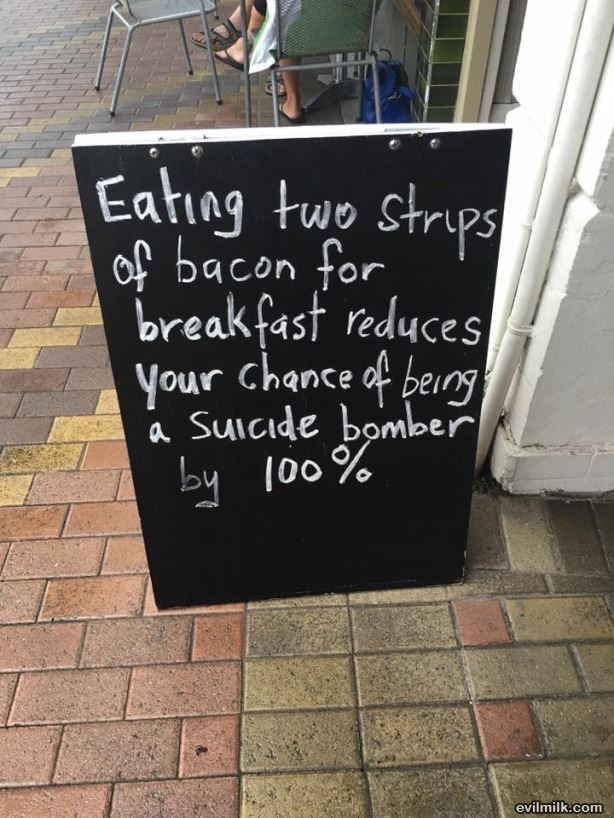 Eating two strips
of bacon for
breakfast reduces
your chance of being
a suicide bomber
by 100%
evilmilk.com